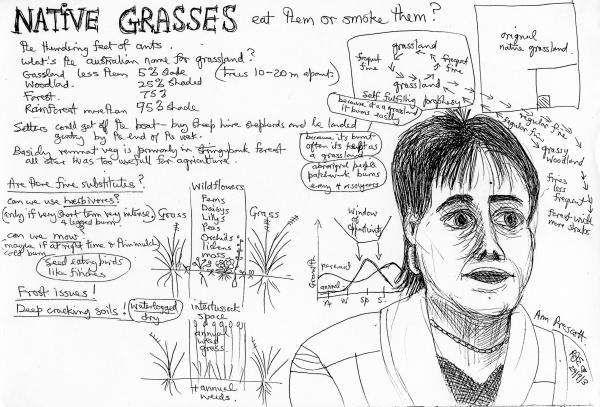 NATIVE GRASSES eat them or smoke them?
The thundering feet of ants.
What's the australian name for grassland?
Grassland less them 5% shade (trees 10-20m apart)
Woodland. 25% shaded
Forest. 75%
Rainforest more than 95% shade
Settlers could get off the boat - buy sheep hire shepherds and be landed
gentry by the end of the week.
Basicly remnant veg is primarily in stringybark forest
all else was too usefull for agriculture.
Are there fire substitutes?
can we use herbivores?
(only if very short term very intense)
4 legged burn
can we mow
maybe if at right time &
cold burn
Seed eating birds
like finches
Frost issues!
Deep cracking soils!
Waterlogged
dry
Grass
Wildflowers
Ferns
Daisys
Lillys
Peas
Orchids
lichens
moss
Grass
intertussock
space
annual
weed
grass
+ annual
weeds.
grassland
frequent
fire
frequent
fire
grassland
Self fulfilling prophesy
because it is a grassland
it burns easily
because its burnt
often its kept as
a grassland
aborigional people
patchwork burns
every 4 or so years
Window
of
Opportunity
Growth
perennial
annual
A W Sp S
original
native grassland.
regular fire
regular fire
grassy
woodland
fires
less
frequent
forest with
more shrubs
Ann Prescott